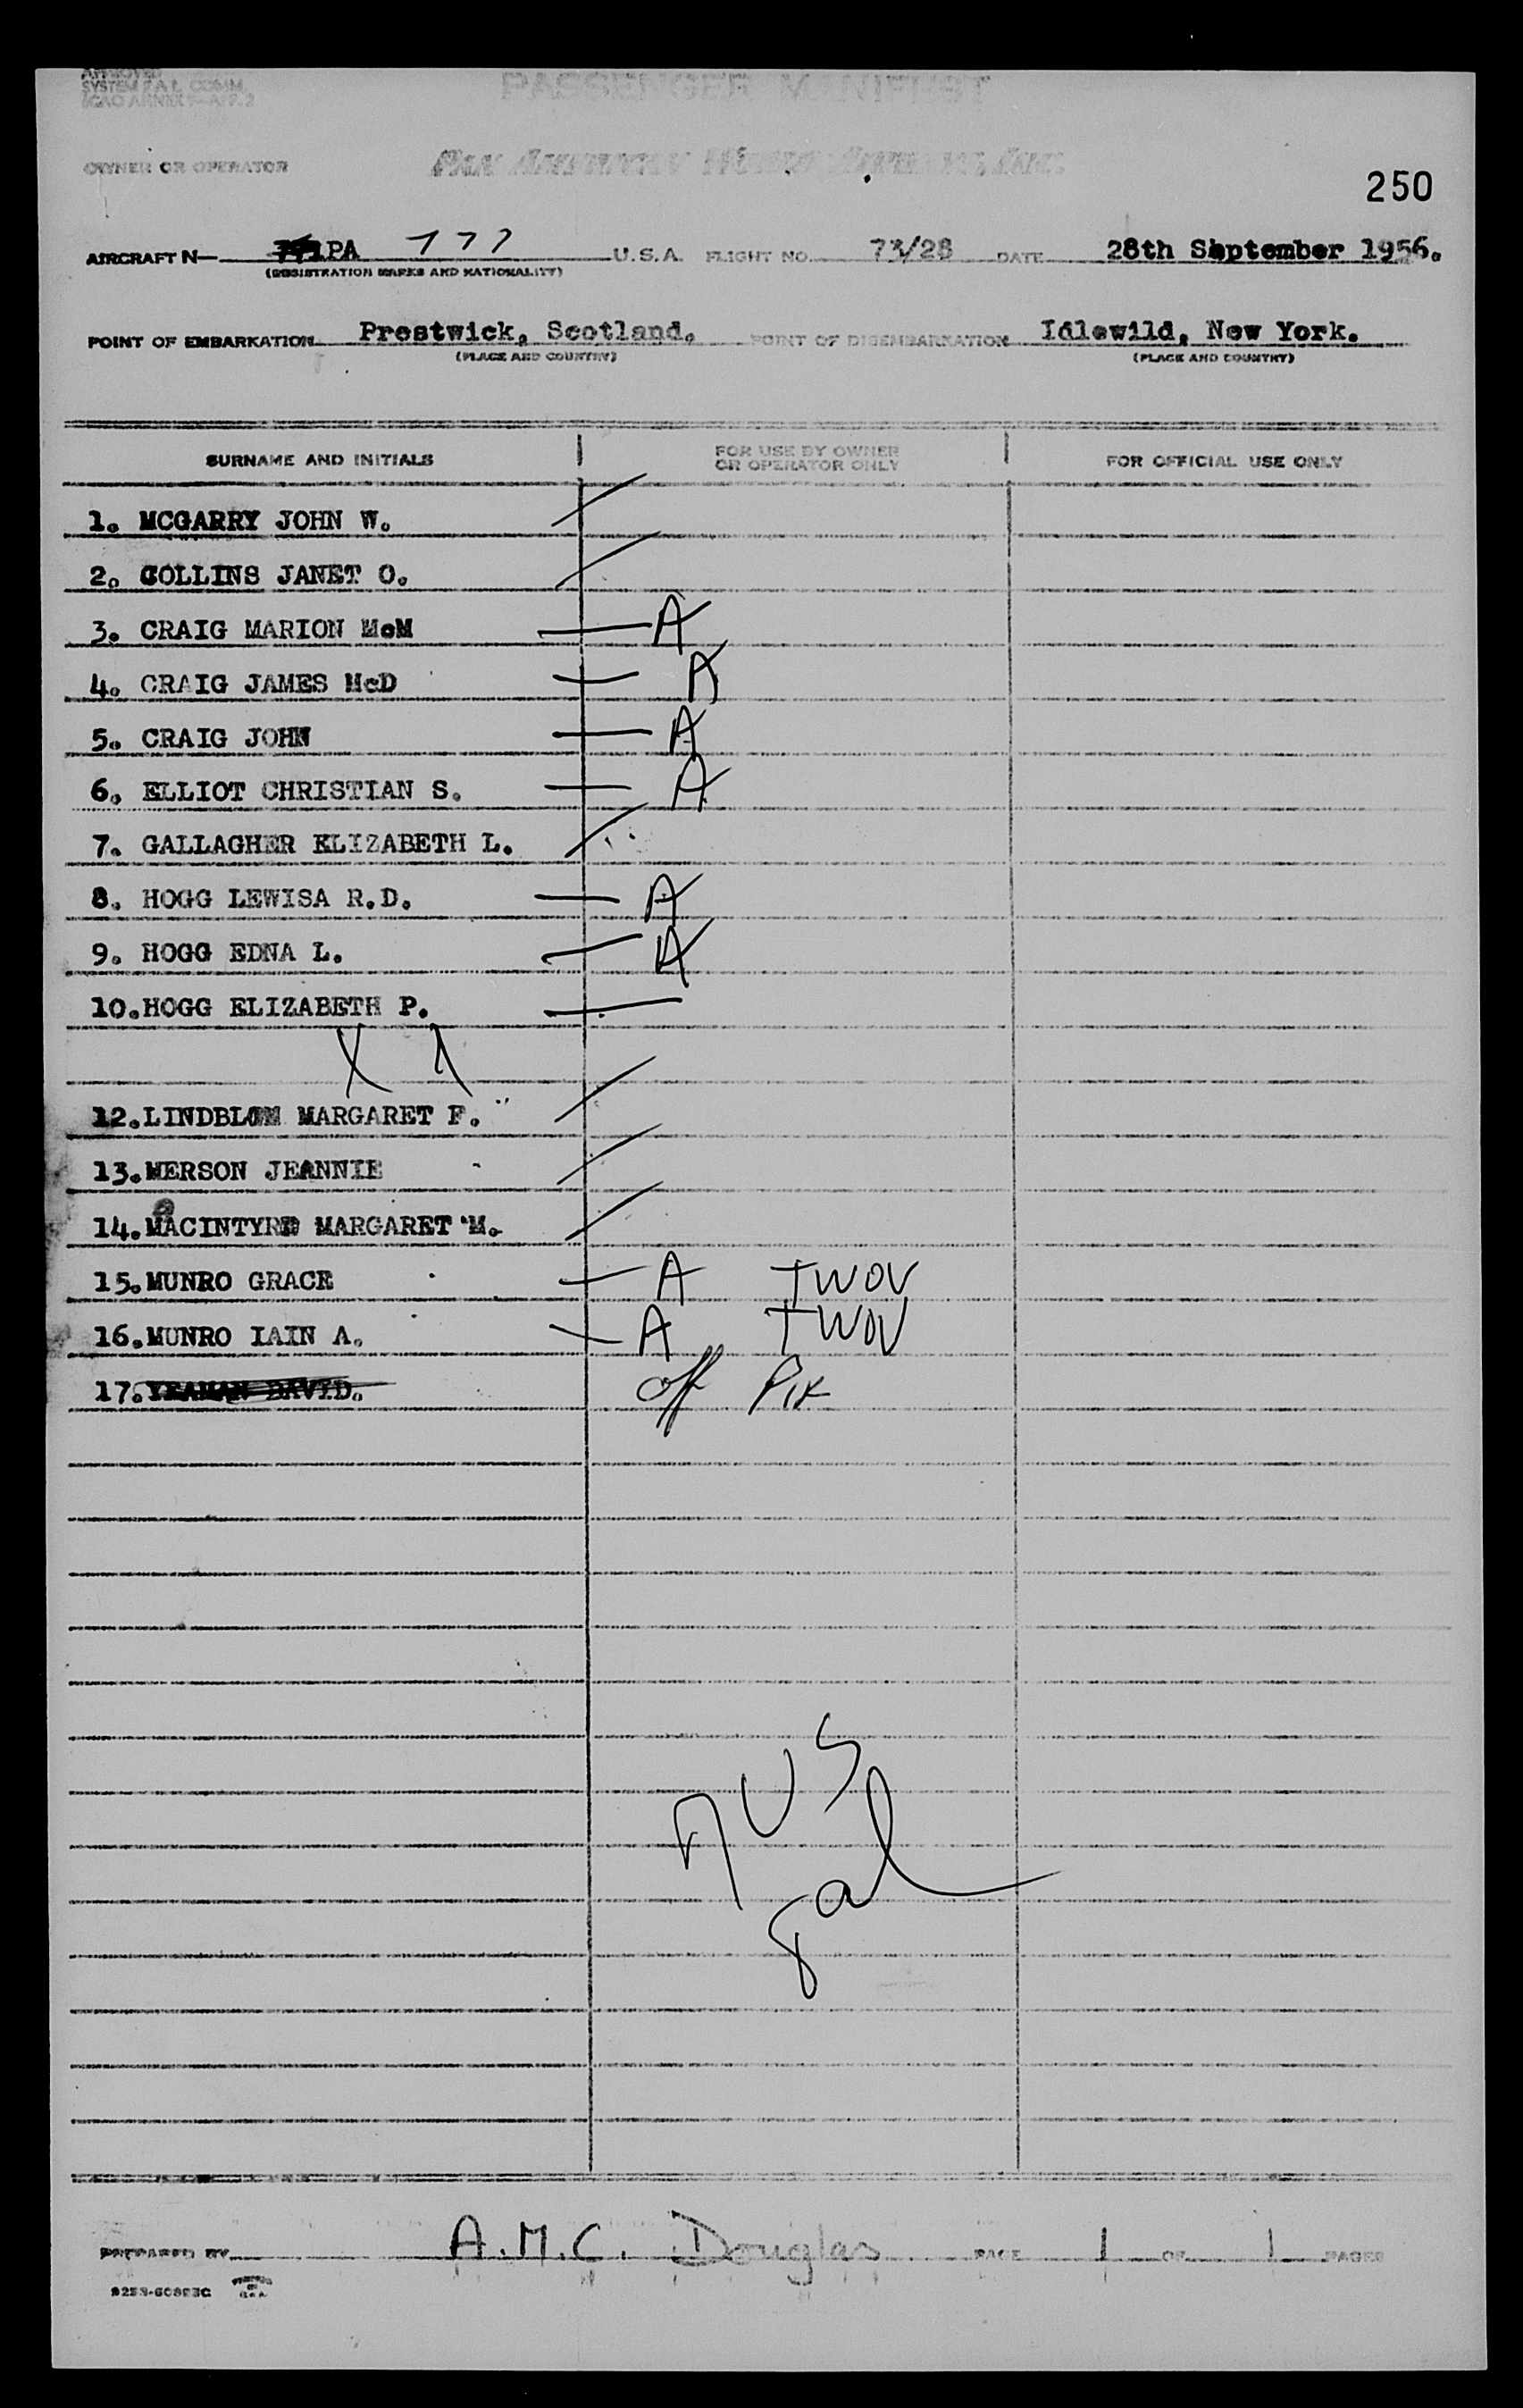 APPROVED
SYSTEM F.A.L. COMM.
ICAO ANNEX 9-APP. 2
PASSENGER MANIFEST
OWNER OR OPERATOR PAN AMERICAN WORLD AIRWAYS, INC.
250
AIRCRAFT N PA 777 U.S.A. FLIGHT NO. 73/28 DATE 28th September 1956.
(REGISTRATION MARKS AND NATIONALITY)
POINT OF EMBARKATION Prestwick, Scotland. POINT OF DISEMBARKATION Idlewild, New York.
(PLACE AND COUNTRY) (PLACE AND COUNTRY)
SURNAME AND INITIALS FOR USE BY OWNER OR OPERATOR ONLY FOR OFFICIAL USE ONLY
1. MCGARRY JOHN W.
2. COLLINS JANET O.
3. CRAIG MARION McM A
4. CRAIG JAMES McD A
5. CRAIG JOHN A
6. ELLIOT CHRISTIAN S. A
7. GALLAGHER ELIZABETH L.
8. HOGG LEWISA R.D. A
9. HOGG EDNA L. A
10. HOGG ELIZABETH P.
12. LINDBLOM MARGARET F.
13. MERSON JEANNIE
14. MACINTYRE MARGARET M.
15. MUNRO GRACE A TWOV
16. MUNRO IAIN A. A TWOV
17. YEAMAN DAVID. off PIK
7 US
8 al
PREPARED BY A.M.C. Douglas PAGE 1 OF 1 PAGES